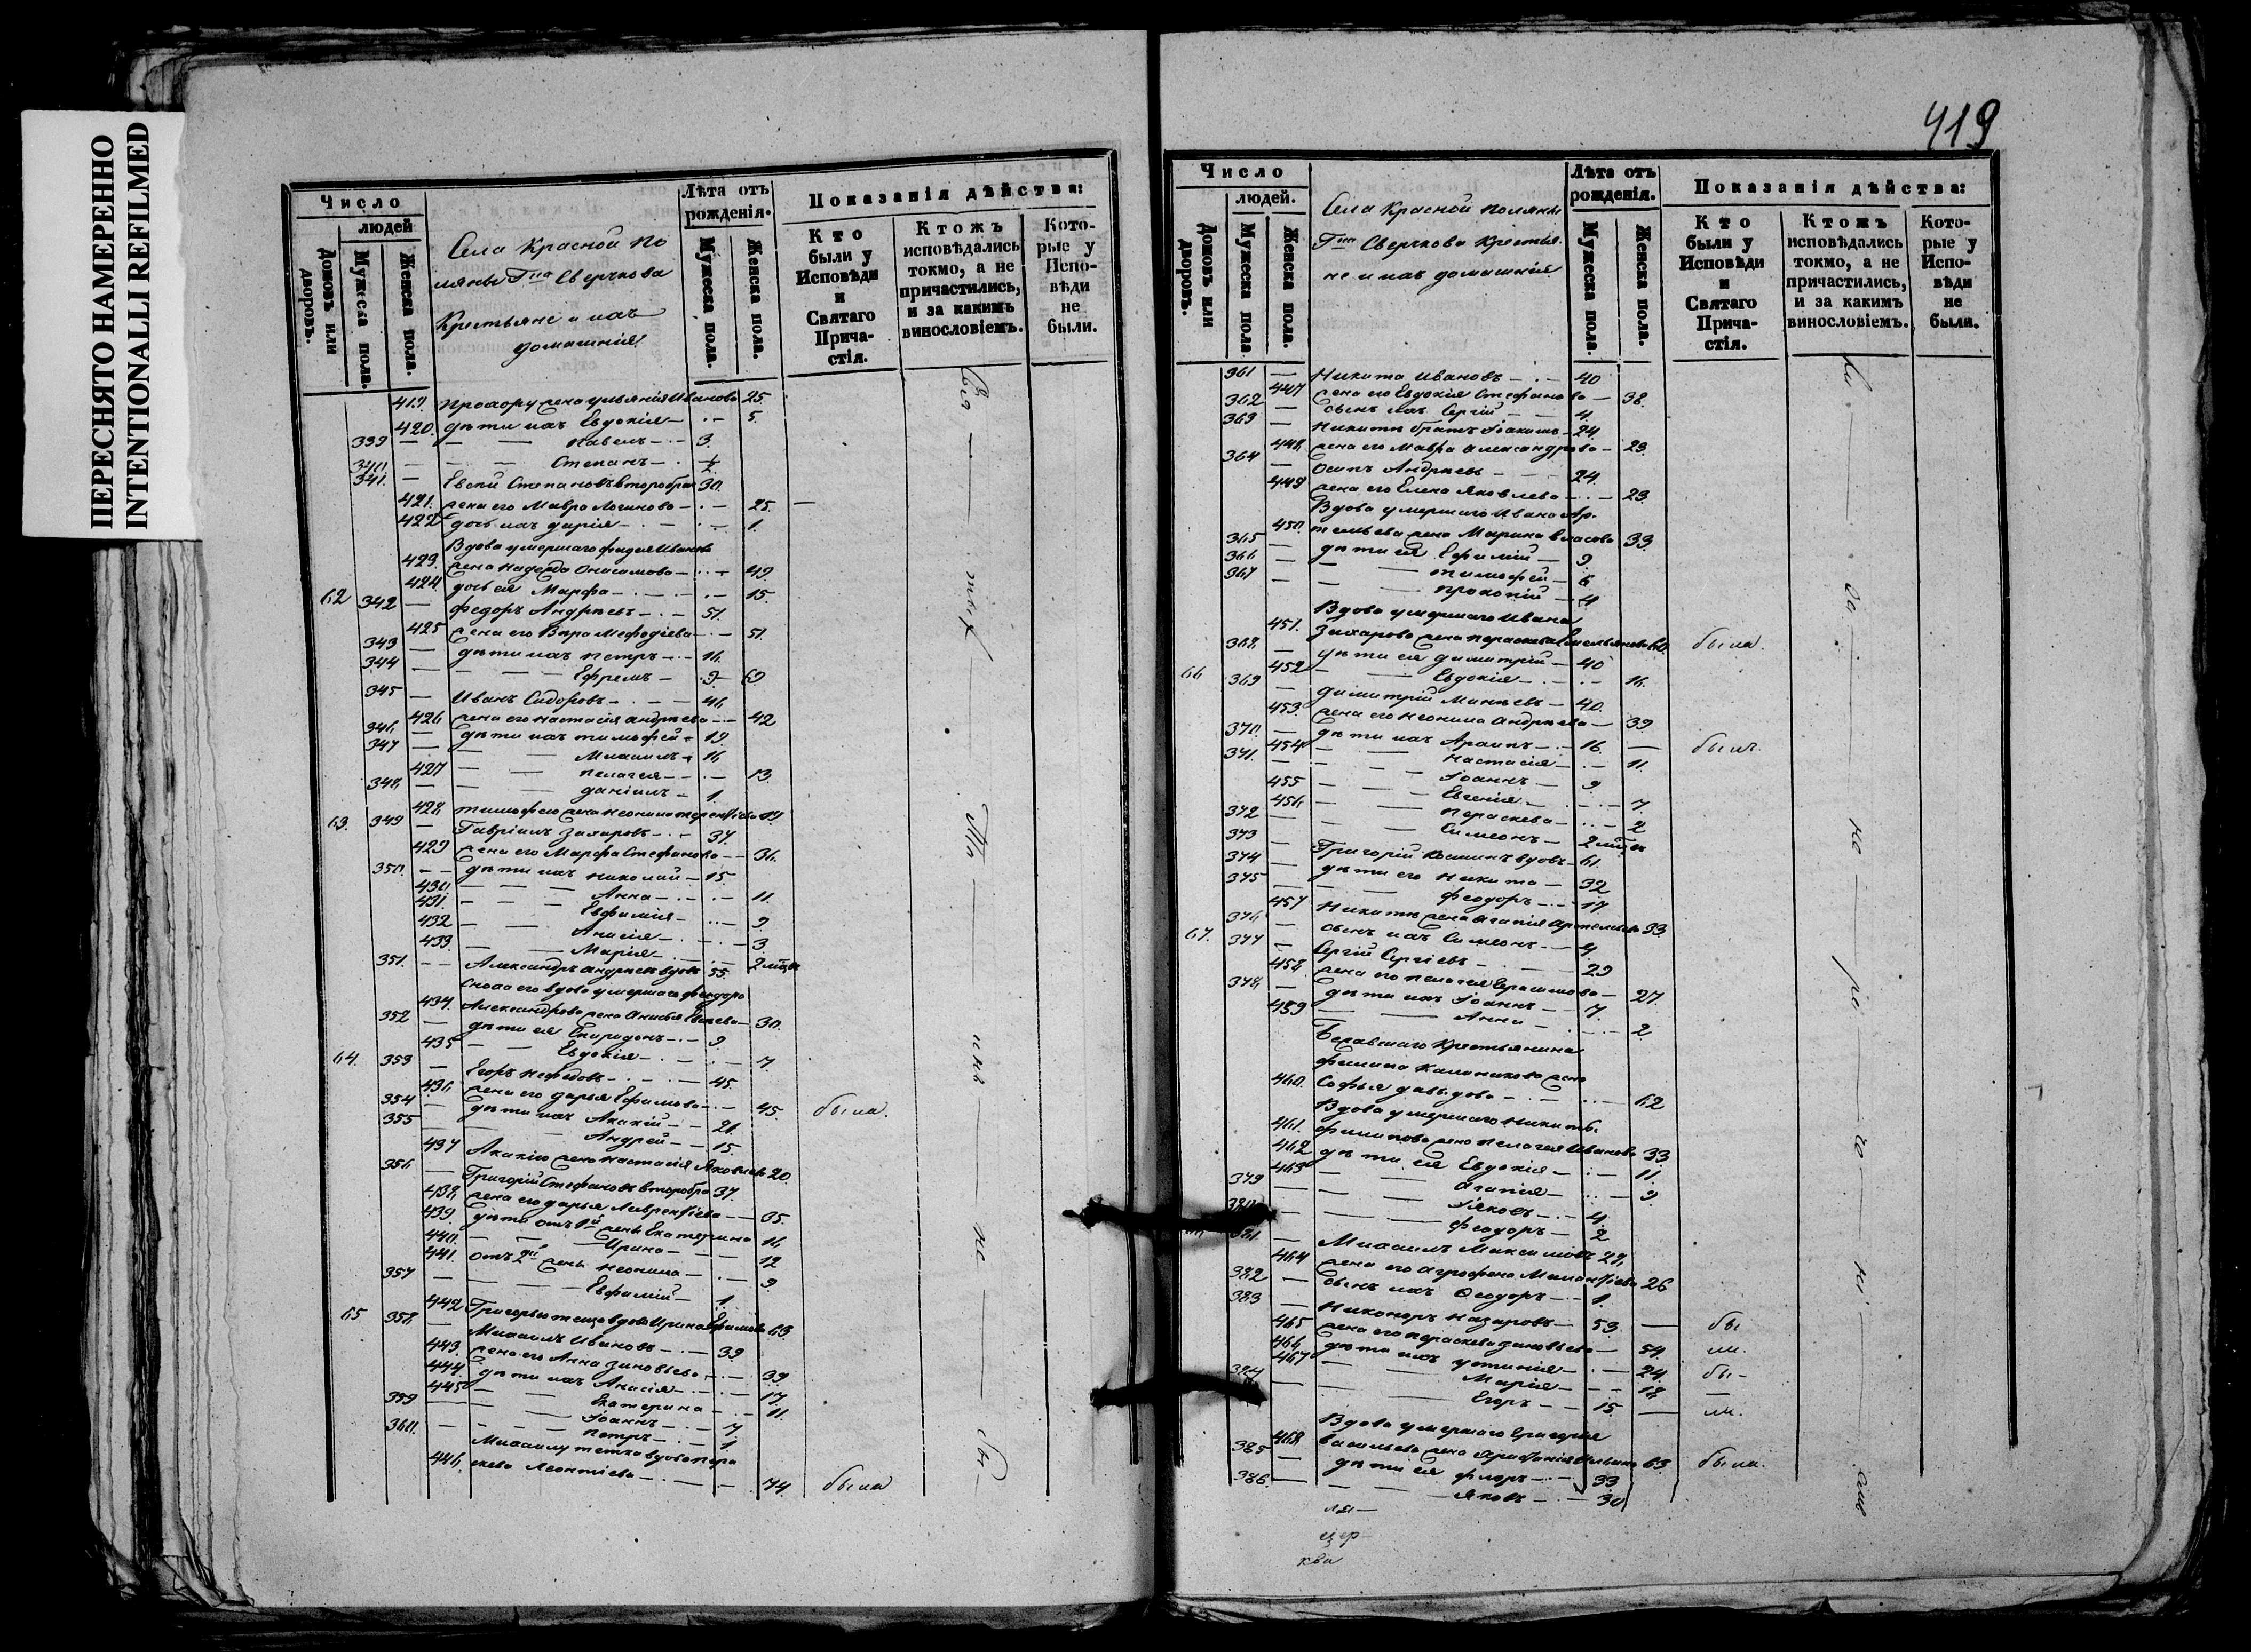 ПЕРЕСНЯТО НАМЕРЕННО
INTENTIONALLI REFILMED
Число
людей
Домовъ или дворовъ.
Мужеска пола.
Женска пола.
Села Красной По
ляны Гна Сверчкова
Крестьяне и ихъ
домашнія
Лѣта отъ
рожденія.
Мужеска пола.
Женска пола.
Показанія дѣйства:
Кто
были у
Исповѣди
и
Святаго
Прича-
стія.
Ктожъ
исповѣдались
токмо, а не
причастились,
и за какимъ
винословіемъ.
Кото-
рые у
Испо-
вѣди
не
были.
419. Прохору жена Ульянія Иванова 25.
420. дѣти ихъ Евдокія 5.
339 Павелъ 3.
340 Степанъ ½
341. Евсѣй Степановъ второбрач 30.
421. жена его Мавра Логинова 25.
422 дочь ихъ Дарія 1.
Вдова умершаго Фадея Иванова
423. жена Надежда Онисимова 49.
424. дочь ея Марфа 15.
62 342 Федоръ Андреевъ 51.
425 жена его Вѣра Мефодіева 51.
343 дѣти ихъ Петръ 16.
344 Ефремъ 9
345 Иванъ Сидоровъ 46
426 жена его Настасія Андреева 42
346 дѣти ихъ Тимофей 19.
347 Михаилъ 16
427 Пелагея 13.
348 Даніилъ 1.
428 Тимофею жена Неонила Терентіева 19
63. 349 Гавріилъ Захаровъ 37.
429 жена его Марфа Стефанова 36.
350. дѣти ихъ Николай 15.
430. Анна 11.
431. Евфимія 9.
432 Анисія 3.
433. Марія 2 мѣся
351. Александръ Андреевъ вдовъ 55.
Сноха его вдова умершаго Феодора
434. Александрова жена Анисья Евсеева 30.
352 дѣти ея Спиридонъ 9.
435 Евдокія 7
64. 353 Егоръ Нефедовъ 45.
436 жена его Дарья Ефимова 45. была.
354 дѣти ихъ Акакій 21.
355 Андрей 15.
437 Акакію жена Настасія Яковлева 20.
356 Григорій Стефановъ второбра 37.
438 жена его Дарья Лаврентіева 35.
439 дѣти отъ 1й жены Екатерина 16
440. Ирина 12
441. отъ 2й жены Неонила 9.
357 Евфимій 1.
442 Григорью теща вдова Ирина Ефимова 63
65 358 Михаилъ Ивановъ 39
443. жена его Анна Зиновьева 39.
444. дѣти ихъ Анисія 17.
445 Екатерина 11.
359 Іоаннъ 7
360. Петръ 1.
Михаилу тетка вдова Пара
446. скева Леонтіева 74. была
Вси
жъ
ни
не
бы
419
Число
людей.
Домовъ или дворовъ.
Мужеска пола
Женска пола.
Села Красной Поляны
Гна Сверчкова Крестья-
не и ихъ домашнія
Лѣта отъ
рожденія.
Мужеска пола.
Женска пола.
Показанія дѣйства:
Кто
были у
Исповѣди
и
Святаго
Прича-
стія.
Ктожъ
исповѣдались
токмо, а не
причастились,
и за какимъ
винословіемъ.
Кото-
рые у
Испо-
вѣди
не
были.
361 Никита Ивановъ 40
447 жена его Евдокія Стефанова 38.
362 сынъ ихъ Сергій 4.
363 Никитѣ братъ Іоакимъ 24.
448 жена его Мавра Александрова 23.
364 Осипъ Андреевъ 24.
449 жена его Елена Яковлева 23.
Вдова умершаго Ивана Ар-
450. темьева жена Марина Власова 33.
365 дѣти ея Ефимій 9.
366 Тимофей 6
367 Прокопій 4
Вдова умершаго Ивана
451. Захарова жена Параскева Емельянова 60. была.
368 дѣти ея Димитрій 40
452 Евдокія 16.
66 369 Димитрій Минѣевъ 40.
453. жена его Неонила Андреева 39
370. дѣти ихъ Архипъ 16. былъ.
454 Настасія 11.
371. Іоаннъ 9
455 Евгенія 7.
456 Параскева 2
372 Симеонъ 2 мѣся
373 Григорій вдовъ 61.
374 дѣти его Никита 32
375 Феодоръ 17
457 Никитѣ жена Агапія Артемьева 33.
376 сынъ ихъ Симеонъ 4.
67. 377 Сергій Сергіевъ 29
458 жена его Пелагея Герасимова 27.
378 дѣти ихъ Іоаннъ 7.
459 Анна 2
Бежавшаго Крестьянина
Филипа Калиникова жена
460. Софья Давыдова 62
Вдова умершаго Никиты
461. Филипова жена Пелагея Иванова 33
462 дѣти ея Евдокія 11.
463 Агапія 9
379 Іяковъ 4.
380 Феодоръ 2
381. Михаилъ Максимовъ 29,
464 жена его Агрофена Мелентіева 26
382 сынъ ихъ Феодоръ 1.
383 Никоноръ Назаровъ 53. бы
465 жена его Параскева Зиновьева 54. ли.
466 дѣти ихъ Устинія 24. бы-
467 Марія 18
384 Егоръ 15. ли.
Вдова умершаго Григорія
468 Васильева жена Ильина 63. была.
385 дѣти ея Флоръ 33
386. Яковъ 30
ля-
цер-
кви
не